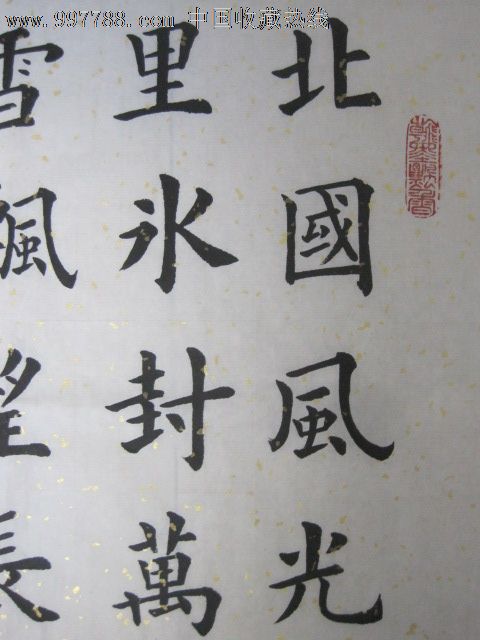 www.997788.com 中国收藏热线
北國風光
里氷封萬
雪飄望長